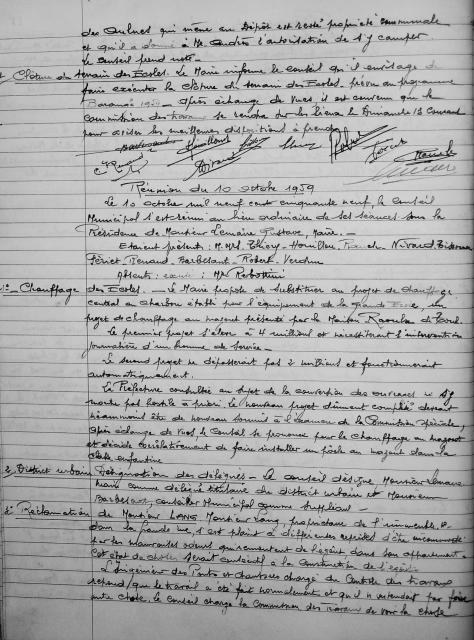 des Aulnes qui mène au Dépôt est resté propriété communale
et qu'il a donné à Mr André l'autorisation de s'y camper
Le Conseil prend note -
Clôture du terrain des Ecoles. Le Maire informe le Conseil qu'il envisage de
faire exécuter la clôture du terrain des Ecoles, prévu au programme
1959 - Après échange de vues, il est convenu que la
commission des travaux se rendra sur les lieux le Dimanche 13 Courant
pour aviser les meilleures dispositions à prendre
Réunion du 10 octobre 1959
Le 10 octobre mil neuf cent cinquante neuf, le Conseil
Municipal s'est réuni au lieu ordinaire de ses séances sous la
Présidence de Monsieur Lemaire Gustave, Maire. -
Etaient présents : M.M. Thiéry - Houillon,
Fériet Renard - Barbesant - Robert - Verdun
Absents : excusé : Mr
1° Chauffage des Ecoles. - Le Maire propose de substituer au projet de chauffage
central au charbon établi pour l'équipement de la un
projet de chauffage au mazout présenté par la Maison de Toul.
Le premier projet s'élève à 4 millions et nécessiterait l'intervention
journalière d'un homme de service -
Le second projet ne dépasserait pas 2 millions et fonctionnerait
automatiquement.
La Préfecture consultée au sujet de la conversion des ouvrages ne s'y
montre pas hostile à priori. Le nouveau projet dûment complété devrait
néanmoins être de nouveau soumis à l'examen de la Commission Spéciale,
Après échange de vues, le Conseil se prononce pour le chauffage au mazout
et décide corrélativement de faire installer un poêle au mazout dans la
classe enfantine
2° District urbain Désignation des délégués - Le Conseil désigne Monsieur Lemaire
Maire comme délégué titulaire du district urbain et Monsieur
Barbesant, Conseiller Municipal comme suppléant -
3° Réclamation de Monsieur LANG Monsieur Lang, propriétaire de l'immeuble
dans la Grande Rue, s'est plaint à différentes reprises d'être incommodé
par les mauvaises odeurs qui remontent de l'égout dans son appartement -
Cet état de choses serait consécutif à la construction de l'égout
L'Ingénieur des Ponts et Chaussées chargé du Contrôle des travaux
répond que le travail a été fait normalement et qu'il n'entendait pas faire
autre chose. Le Conseil charge la Commission des Travaux de voir la chose